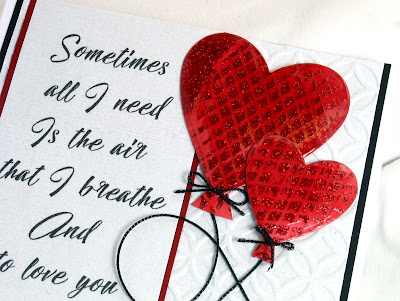 Sometimes
all I need
Is the air
that I breathe
And
to love you